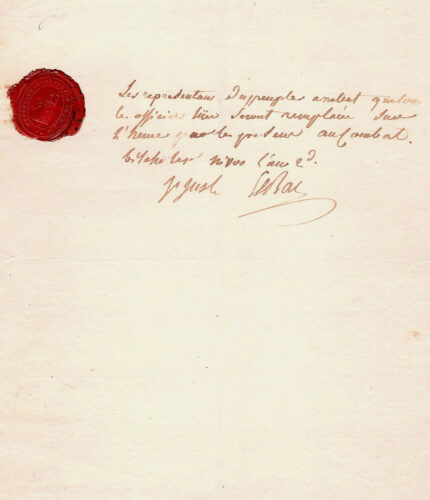 Les représentans du peuple arretent que tous
les officiers tués seront remplacés sur
l'heure par les posteur au Combat.
Bitche les nivos l'an 2d.
St Just LeBas